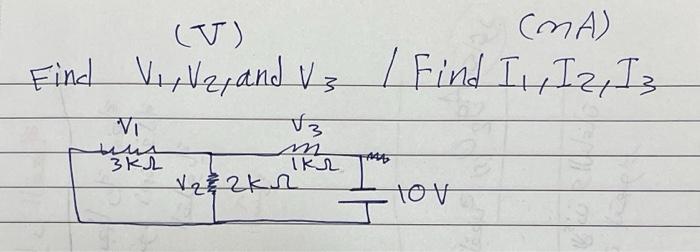 (V) (mA)
Find V1, V2, and V3 / Find I1, I2, I3
V1 V3
3KΩ 1KΩ
V2 2KΩ 10V